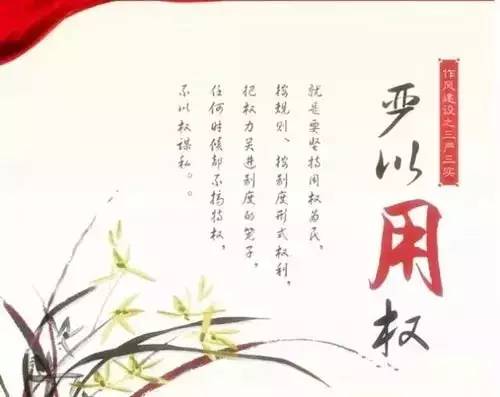 作风建设之三严三实
严以用权
就是要坚持用权为民，
按规则、按制度形式权利，
把权力关进制度的笼子，
任何时候都不搞特权，
不以权谋私。。